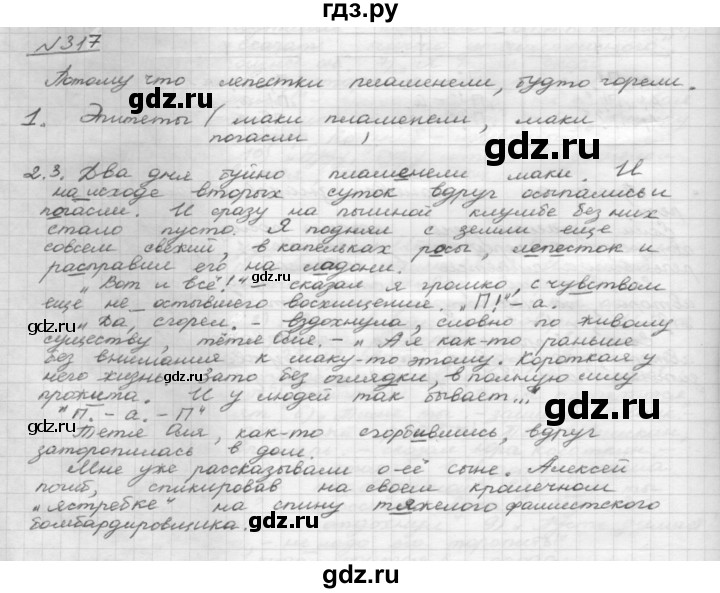 гдз.ру
№317
gdz.ru
Потому что лепестки пламенели, будто горели.
gdz.ru
gdz.ru
1. Эпитеты ( маки пламенели, маки
погасли )
2.3. Два дня буйно пламенели маки. И
на исходе вторых суток вдруг осыпались и
погасли. И сразу на пышной клумбе без них
стало пусто. Я поднял с земли еще
совсем свежий, в капельках росы, лепесток и
расправил его на ладони.
gdz.ru
gdz.ru
„Вот и всё!" – сказал я громко, с чувством
еще не остывшего восхищения. „П!" – а.
„Да, сгорел. – вздохнула, словно по живому
существу, тётя Оля. – „А я как-то раньше
без внимания к маку-то этому. Короткая у
него жизнь. Зато без оглядки, в полную силу
прожита. И у людей так бывает..."
gdz.ru
gdz.ru
"П. – а. – П"
Тетя Оля, как-то сгорбившись, вдруг
заторопилась в дом.
gdz.ru
Мне уже рассказывали о её сыне. Алексей
погиб, спикировав на своем крошечном
„ястребке" на спину тяжелого фашистского
бомбардировщика.
gdz.ru
gdz.ru
гдз.ру